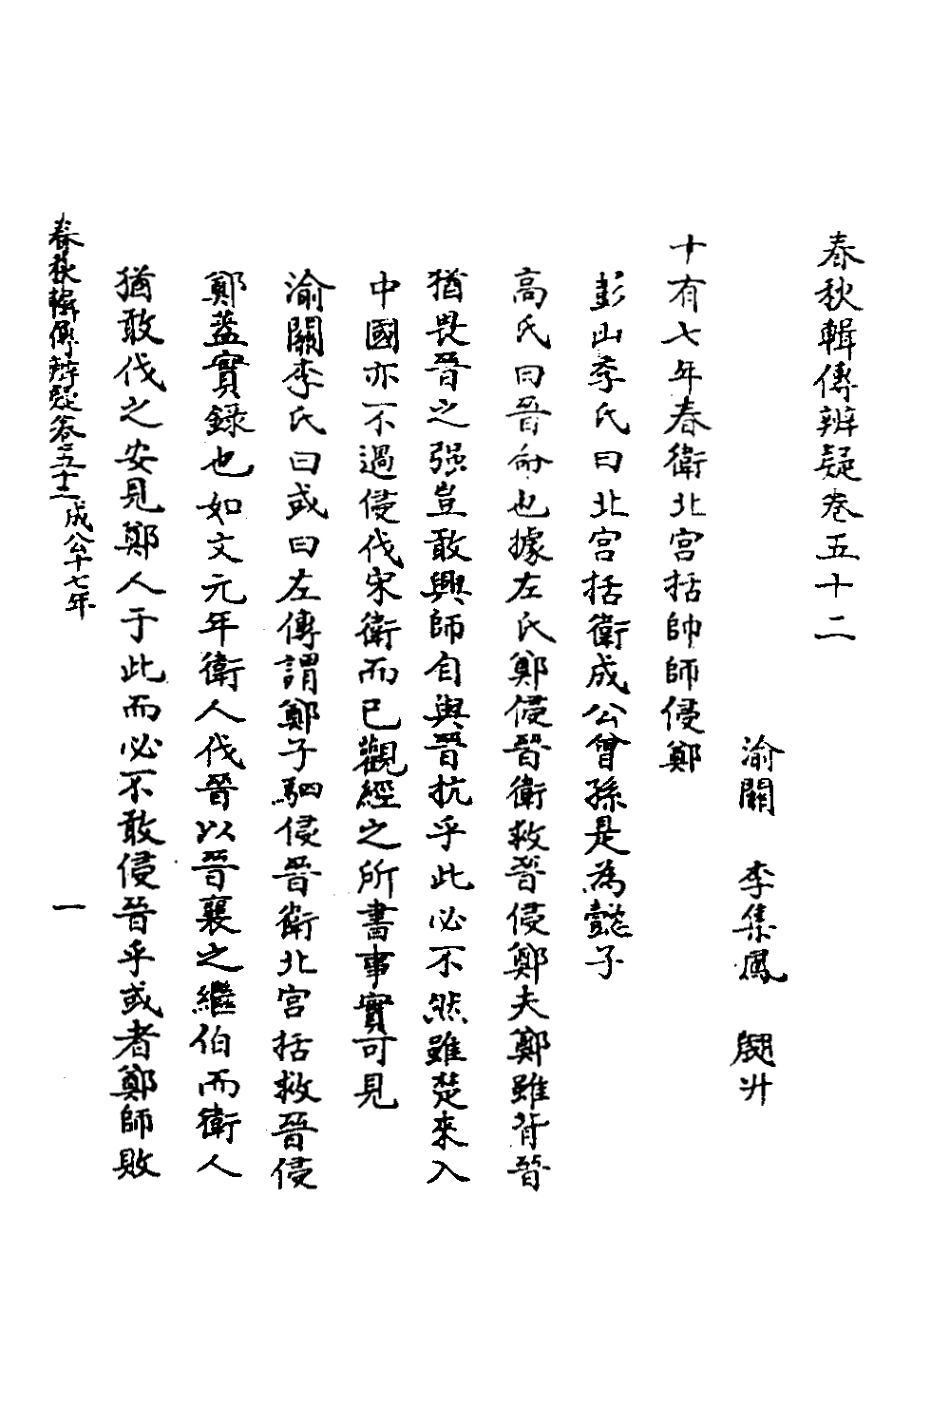 春秋輯傳辨疑卷五十二
渝關 李集鳳 翽升
十有七年春衛北宮括帥師侵鄭
彭山季氏曰北宮括衛成公曾孫是為懿子
高氏曰晉命也據左氏鄭侵晉衛救晉侵鄭夫鄭雖背晉
猶畏晉之强豈敢興師自與晉抗乎此必不然雖楚來入
中國亦不過侵伐宋衛而已觀經之所書事實可見
渝關李氏曰或曰左傳謂鄭子駟侵晉衛北宮括救晉侵
鄭葢實錄也如文元年衛人伐晉以晉襄之繼伯而衛人
猶敢伐之安見鄭人于此而必不敢侵晉乎或者鄭師敗
春秋輯傳辨疑卷五十二 成公十七年 一